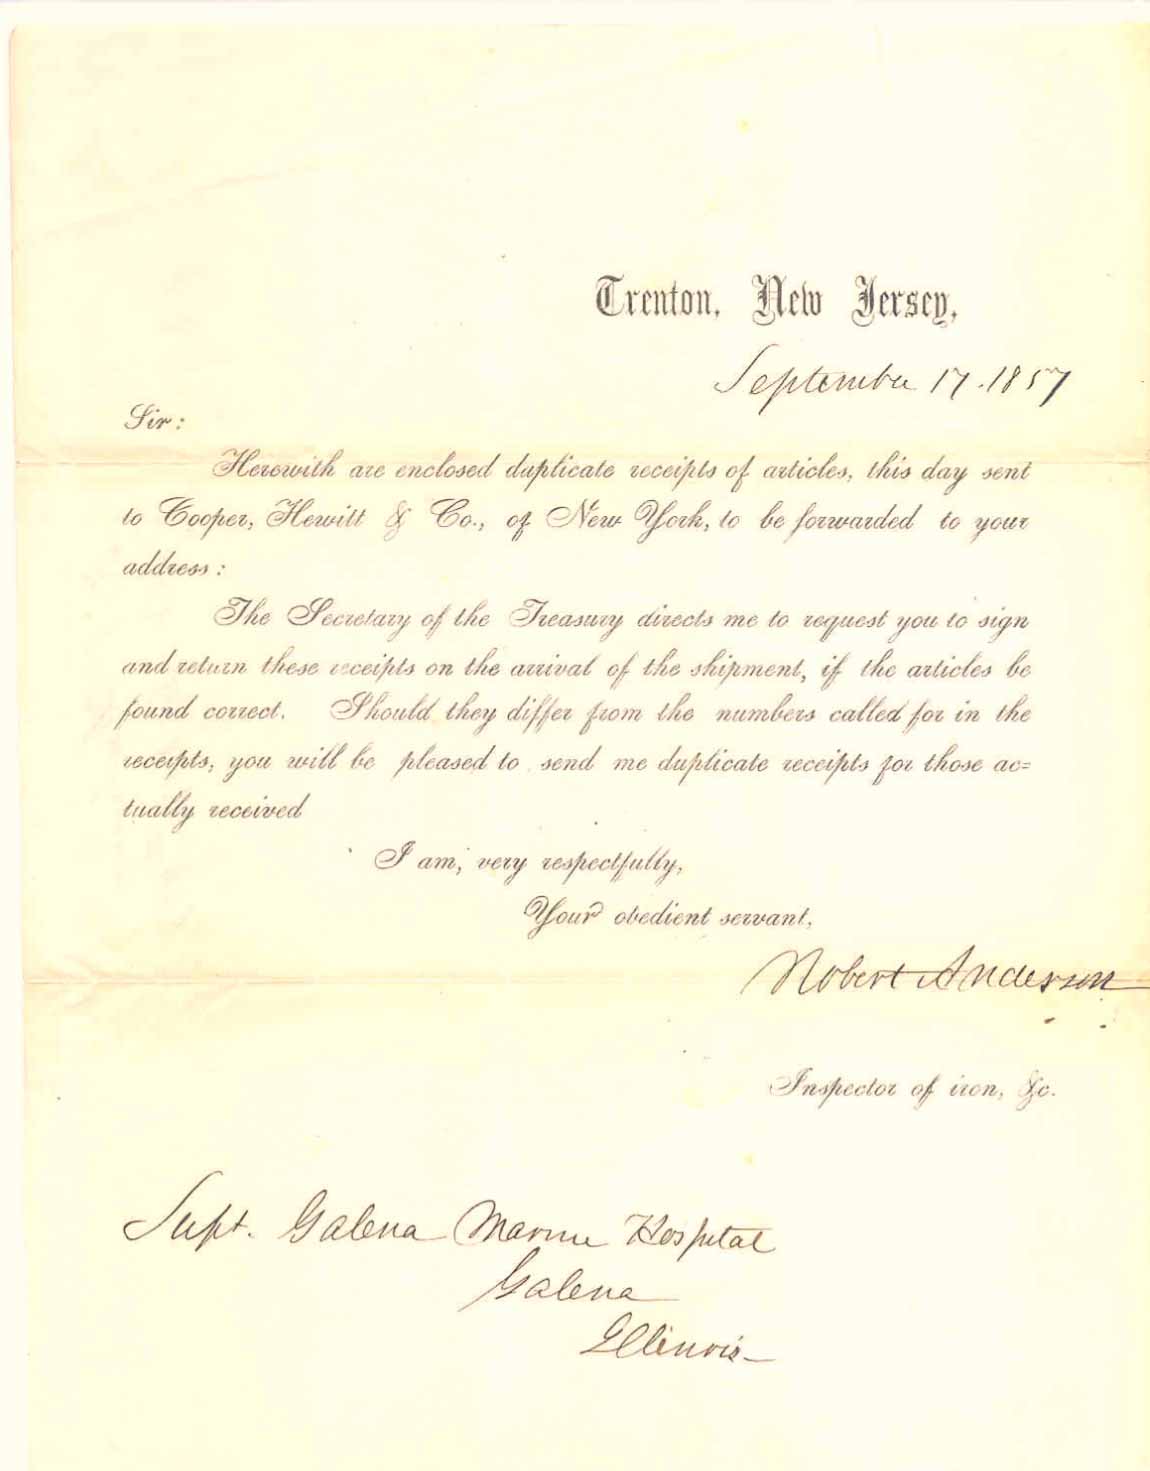 Trenton, New Jersey,
September 17. 1857
Sir:
Herewith are enclosed duplicate receipts of articles, this day sent
to Cooper, Hewitt & Co., of New York, to be forwarded to your
address:
The Secretary of the Treasury directs me to request you to sign
and return these receipts on the arrival of the shipment, if the articles be
found correct. Should they differ from the numbers called for in the
receipts, you will be pleased to send me duplicate receipts for those ac=
tually received
I am, very respectfully,
Your obedient servant,
Robert Anderson
Inspector of iron, &c.
Supt. Galena Marine Hospital
Galena
Illinois